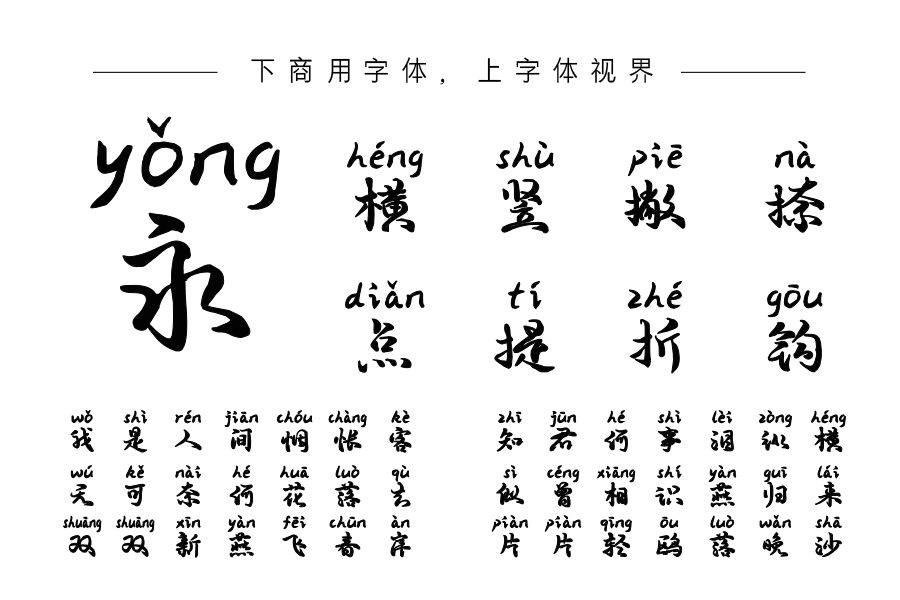 下商用字体，上字体视界
yǒng
永
héng shù piē nà
横 竖 撇 捺
diǎn tí zhé gōu
点 提 折 钩
wǒ shì rén jiān chóu chàng kè
我是人间惆怅客
zhī jūn hé shì lèi zòng héng
知君何事泪纵横
wú kě nài hé huā luò qù
无可奈何花落去
sì céng xiāng shí yàn guī lái
似曾相识燕归来
shuāng shuāng xīn yàn fēi chūn àn
双双新燕飞春岸
piàn piàn qīng ōu luò wǎn shā
片片轻鸥落晚沙